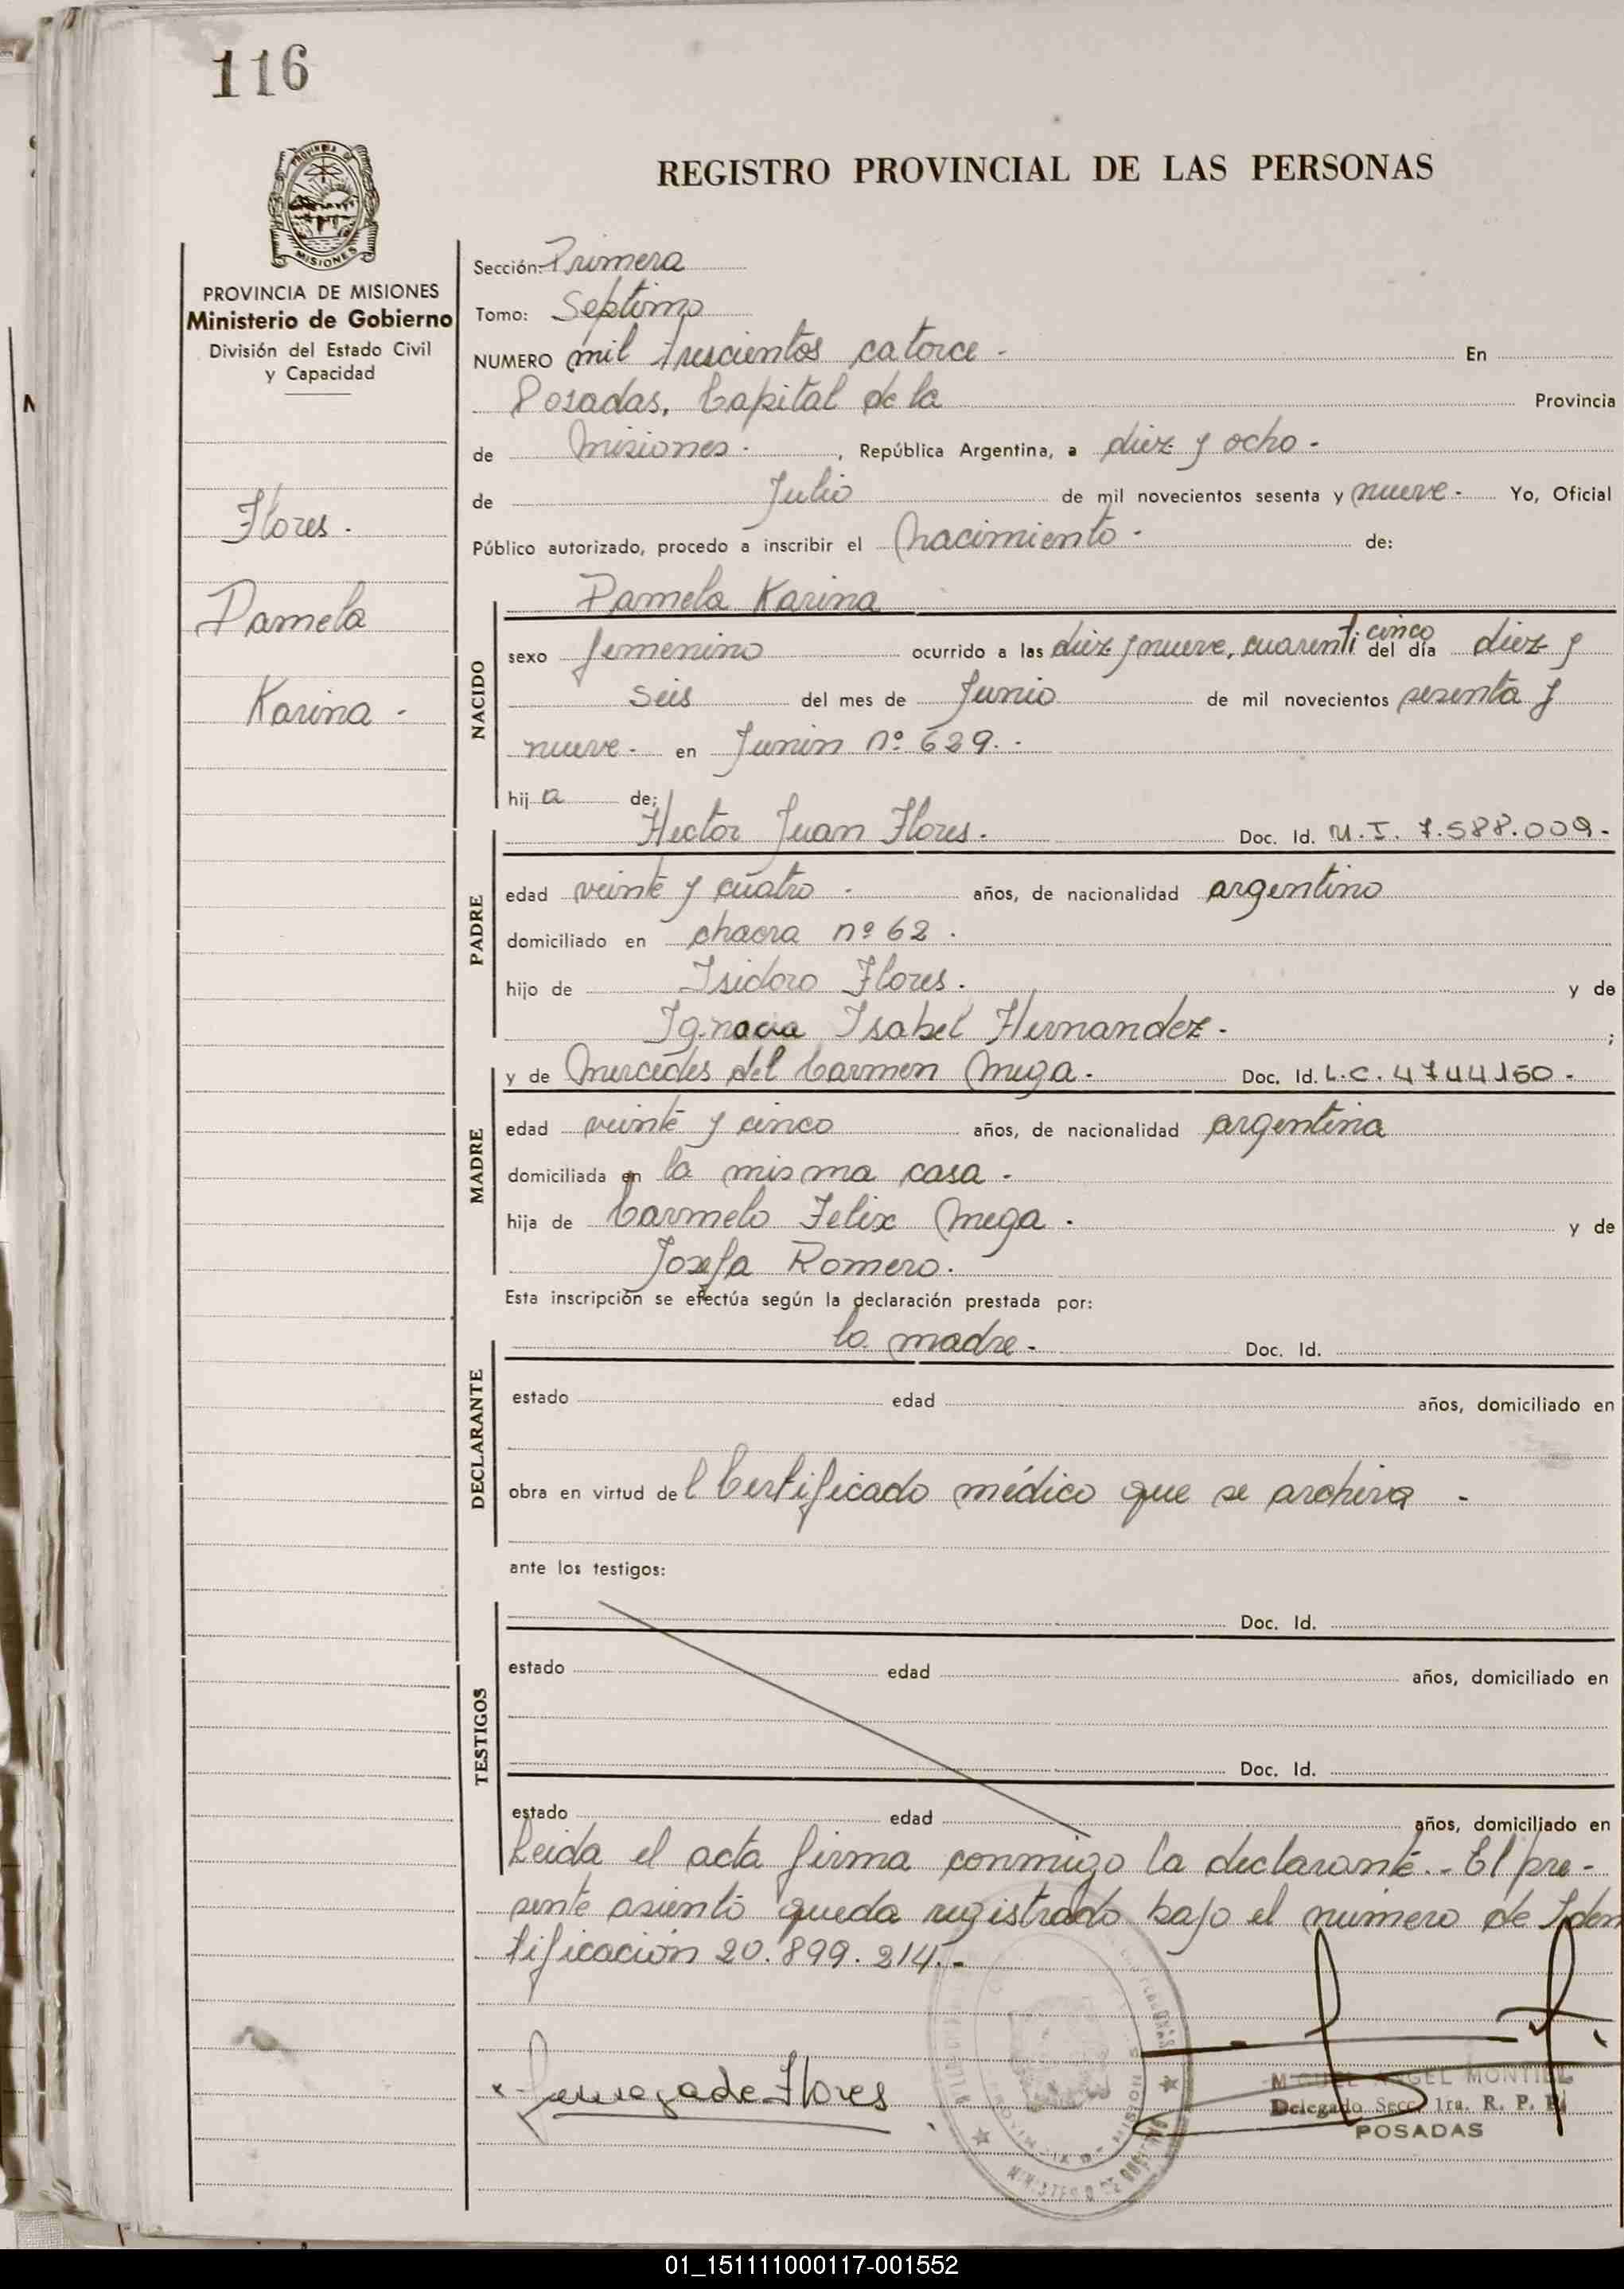 116
REGISTRO PROVINCIAL DE LAS PERSONAS
PROVINCIA DE MISIONES
Ministerio de Gobierno
División del Estado Civil
y Capacidad
Flores.
Pamela
Karina -
Sección: Primera
Tomo: Septimo
NUMERO mil trescientos catorce - En
Posadas, Capital de la Provincia
de Misiones. , República Argentina, a diez y ocho -
de Julio de mil novecientos sesenta y nueve - Yo, Oficial
Público autorizado, procedo a inscribir el nacimiento - de:
Pamela Karina
NACIDO
sexo femenino ocurrido a las diez y nueve, cuarenti cinco del día diez y
seis del mes de Junio de mil novecientos sesenta y
nueve - en Junin nº 629. -
hij a de:
PADRE
Hector Juan Flores. Doc. Id. M. I. 7.588.009 -
edad veinte y cuatro - años, de nacionalidad argentino
domiciliado en chacra nº 62 .
hijo de Isidoro Flores. y de
Ignacia Isabel Hernandez - ;
MADRE
y de Mercedes del Carmen Mega. Doc. Id. L.C. 4744160 -
edad veinte y cinco años, de nacionalidad argentina
domiciliada en la misma casa -
hija de Carmelo Felix Mega . y de
Josefa Romero.
Esta inscripción se efectúa según la declaración prestada por:
DECLARANTE
la madre - Doc. Id.
estado edad años, domiciliado en
obra en virtud del Certificado médico que se archiva -
ante los testigos:
TESTIGOS
Doc. Id.
estado edad años, domiciliado en
Doc. Id.
estado edad años, domiciliado en
Leida el acta firma conmigo la declarante. - El pre-
sente asiento queda registrado bajo el número de Iden
tificación 20.899.214. -
de Flores
MIGUEL ANGEL MONTIEL
Delegado Secc. 1ra. R. P. P.
POSADAS
MINISTERIO DE GOBIERNO
01_151111000117-001552